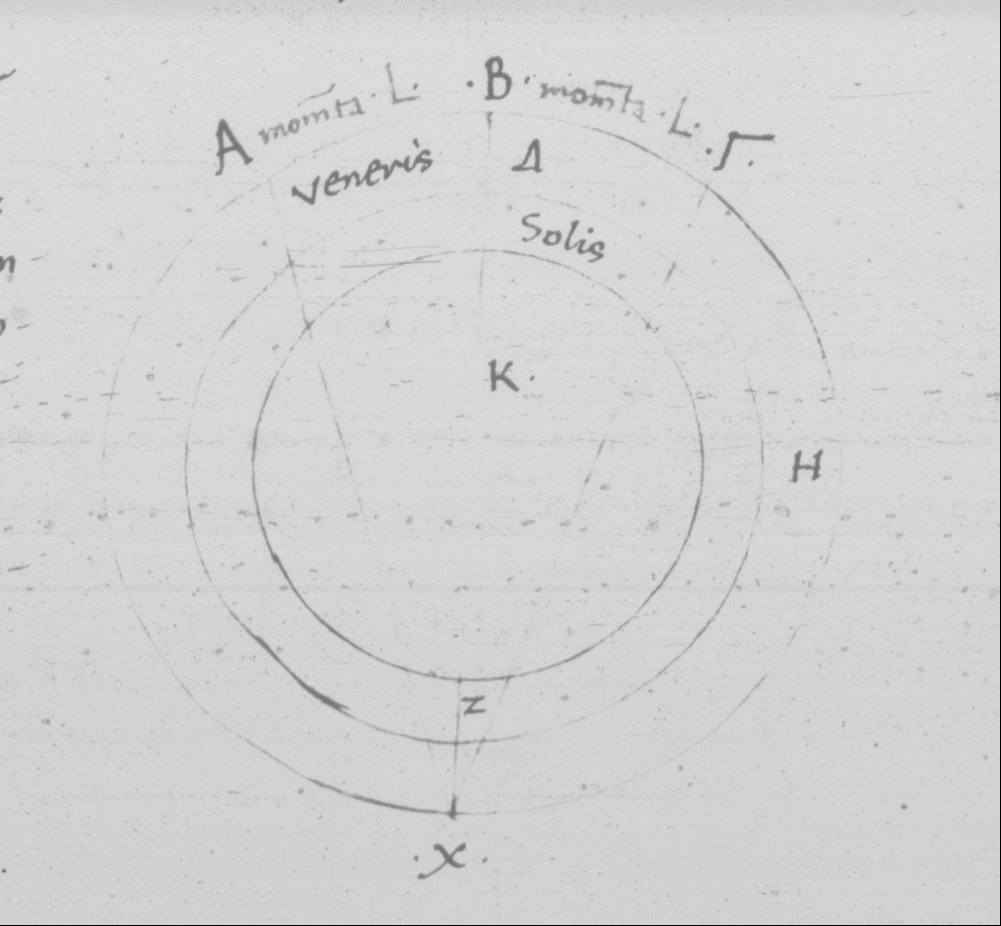 A mom̄ta · L · B · mom̄ta · L · Γ ·
veneris Δ
Solis
K ·
H
Z
· X ·